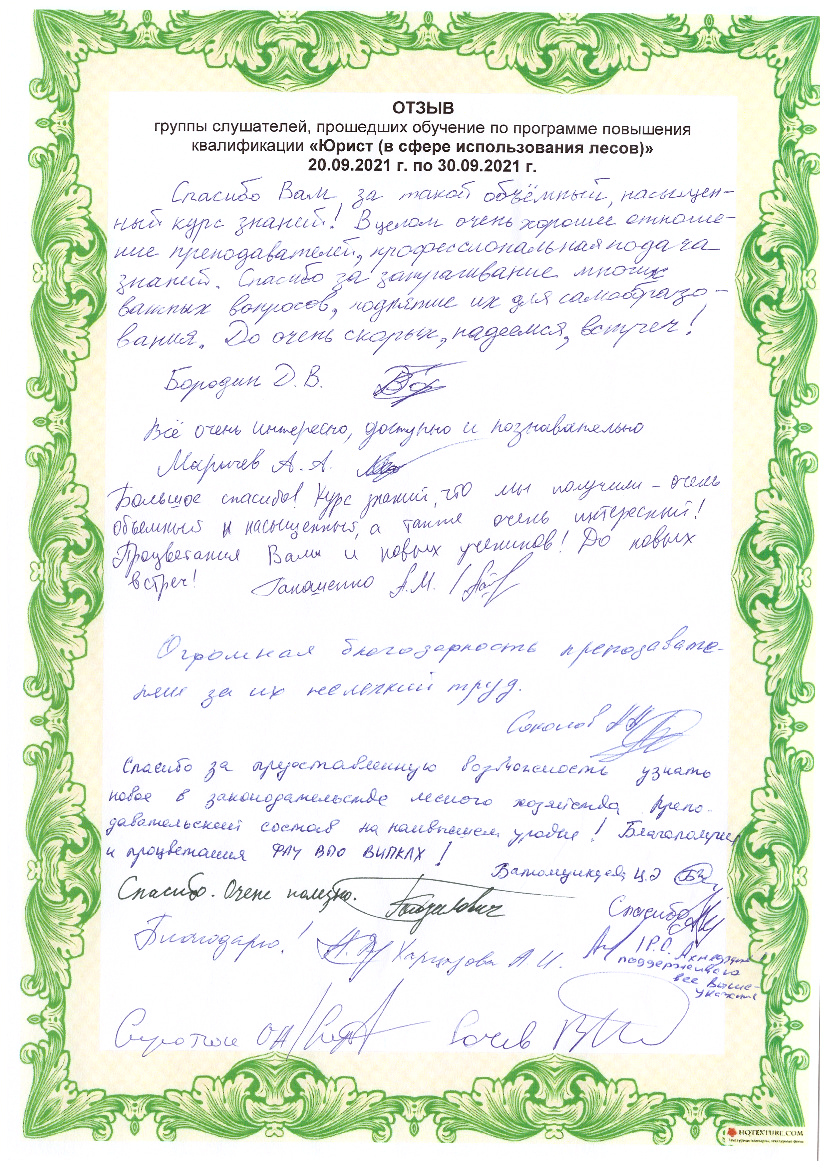 ОТЗЫВ
группы слушателей, прошедших обучение по программе повышения
квалификации «Юрист (в сфере использования лесов)»
20.09.2021 г. по 30.09.2021 г.
Спасибо Вам за такой объёмный, насыщен-
ный курс знаний! В целом очень хорошее отноше-
ние преподавателей, профессиональная подача
знаний. Спасибо за затрагивание многих
важных вопросов, поднятие их для самообразо-
вания. До очень скорых, надеемся, встреч!
Бородин Д.В.
Всё очень интересно, доступно и познавательно
Маричев А.А.
Большое спасибо! Курс знаний, что мы получили - очень
объемный и насыщенный, а также очень интересный!
Процветания Вам и новых учеников! До новых
встреч! Гапошенко А.М.
Огромная благодарность преподавате-
лям за их нелегкий труд.
Соколов
Спасибо за предоставленную возможность узнать
новое в законодательстве лесного хозяйства Препо-
давательский состав на наивысшем уровне! Благополучия
и процветания ФАУ ДПО ВИПКЛХ!
Ц.Э
Спасибо. Очень полезно.
Спасибо
Благодарю! А.И.
поддерживаю
все выше-
указанное
Сиротин
HOTEXTURE.COM